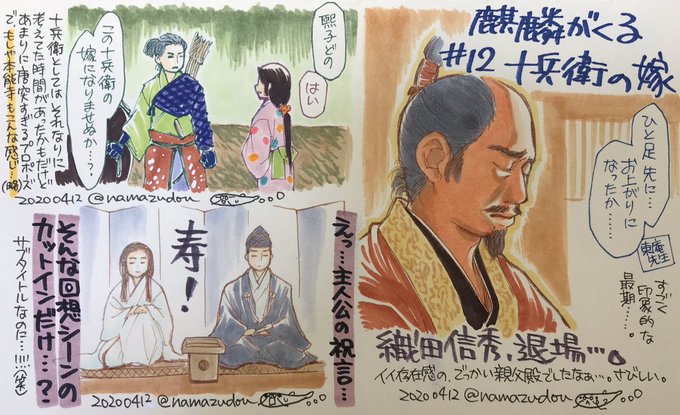 麒麟がくる
#12 十兵衛の嫁
ひと足先に…
お上がりに
なったか……
東庵
先生
すごく
印象的な
最期……。
織田信秀、退場…。
イイ存在感の、でっかい親父殿でしたなぁ…。さびしい。
20200412 @namazudou
熙子どの
はい
この十兵衛の
嫁になりませぬか…?
十兵衛としてはそれなりに
考えてた時間があったかもだけど
あまりに唐突すぎるプロポーズ
で、もしや本能寺もこんな感じ…(略)
20200412 @namazudou
えっ…主人公の祝言…
寿!
そんな回想シーンの
カットインだけ…?
サブタイトルなのに…!!!(笑)
20200412 @namazudou